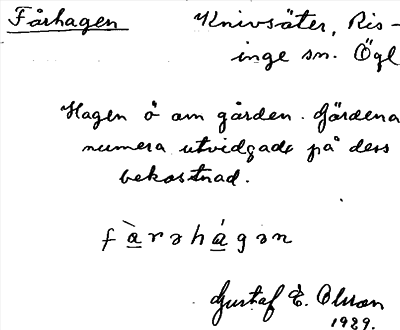 Fårhagen Knivsäter, Ris-
inge sn. Ögl
Hagen ö om gården. Gärdena
numera utvidgade på dess
bekostnad.
fà̲rəhá̲gən
Gustaf E. Olsson
1929.